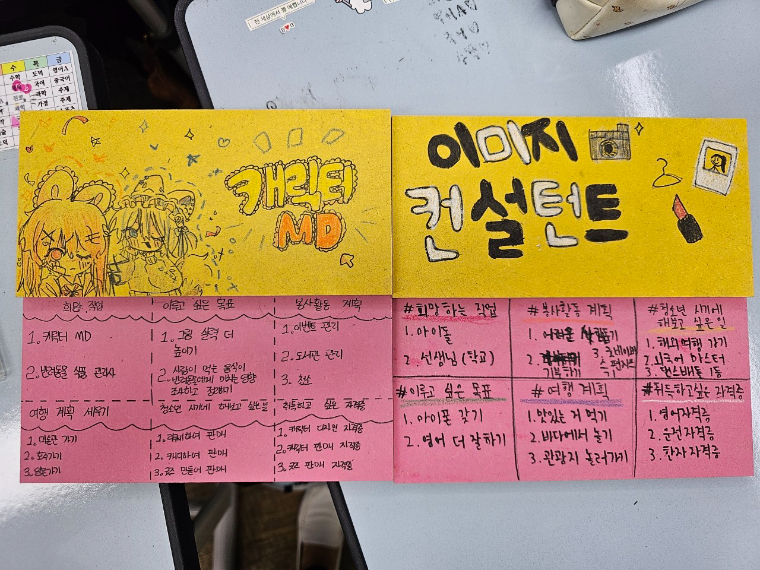 수 목 금
캐릭터
MD
이미지
컨설턴트
희망 직업
1. 캐릭터 MD
2. 반려동물 식품 관리사
이루고 싶은 목표
1. 그림 실력 더
높이기
2. 사람이 먹는 음식이
반려동물에게 미치는 영향
조사하고
봉사활동 계획
1. 이벤트 관리
2. 도서관 관리
3. 청소
여행 계획 세우기
1. 미술관 가기
2. 호주가기
3. 일본가기
청소년 시기에 해보고 싶은
판매
2. 키링하여 판매
3. 굿즈 만들어 판매
취득하고 싶은 자격증
1. 캐릭터 디자인 자격증
2. 캐릭터 판매 자격증
3. 굿즈 판매 자격증
#희망하는 직업
1. 아이돌
2. 선생님 (학교)
#봉사활동 계획
1. 어려운 사람 돕기
기부하기
#청소년 시기에
해보고 싶은 일
1. 해외여행 가기
2. 외국어 마스터
#이루고 싶은 목표
1. 아이폰 갖기
2. 영어 더 잘하기
#여행 계획
1. 맛있는 거 먹기
2. 바다에서 놀기
3. 관광지 놀러가기
#취득하고싶은 자격증
1. 영어자격증
2. 운전자격증
3. 한자 자격증